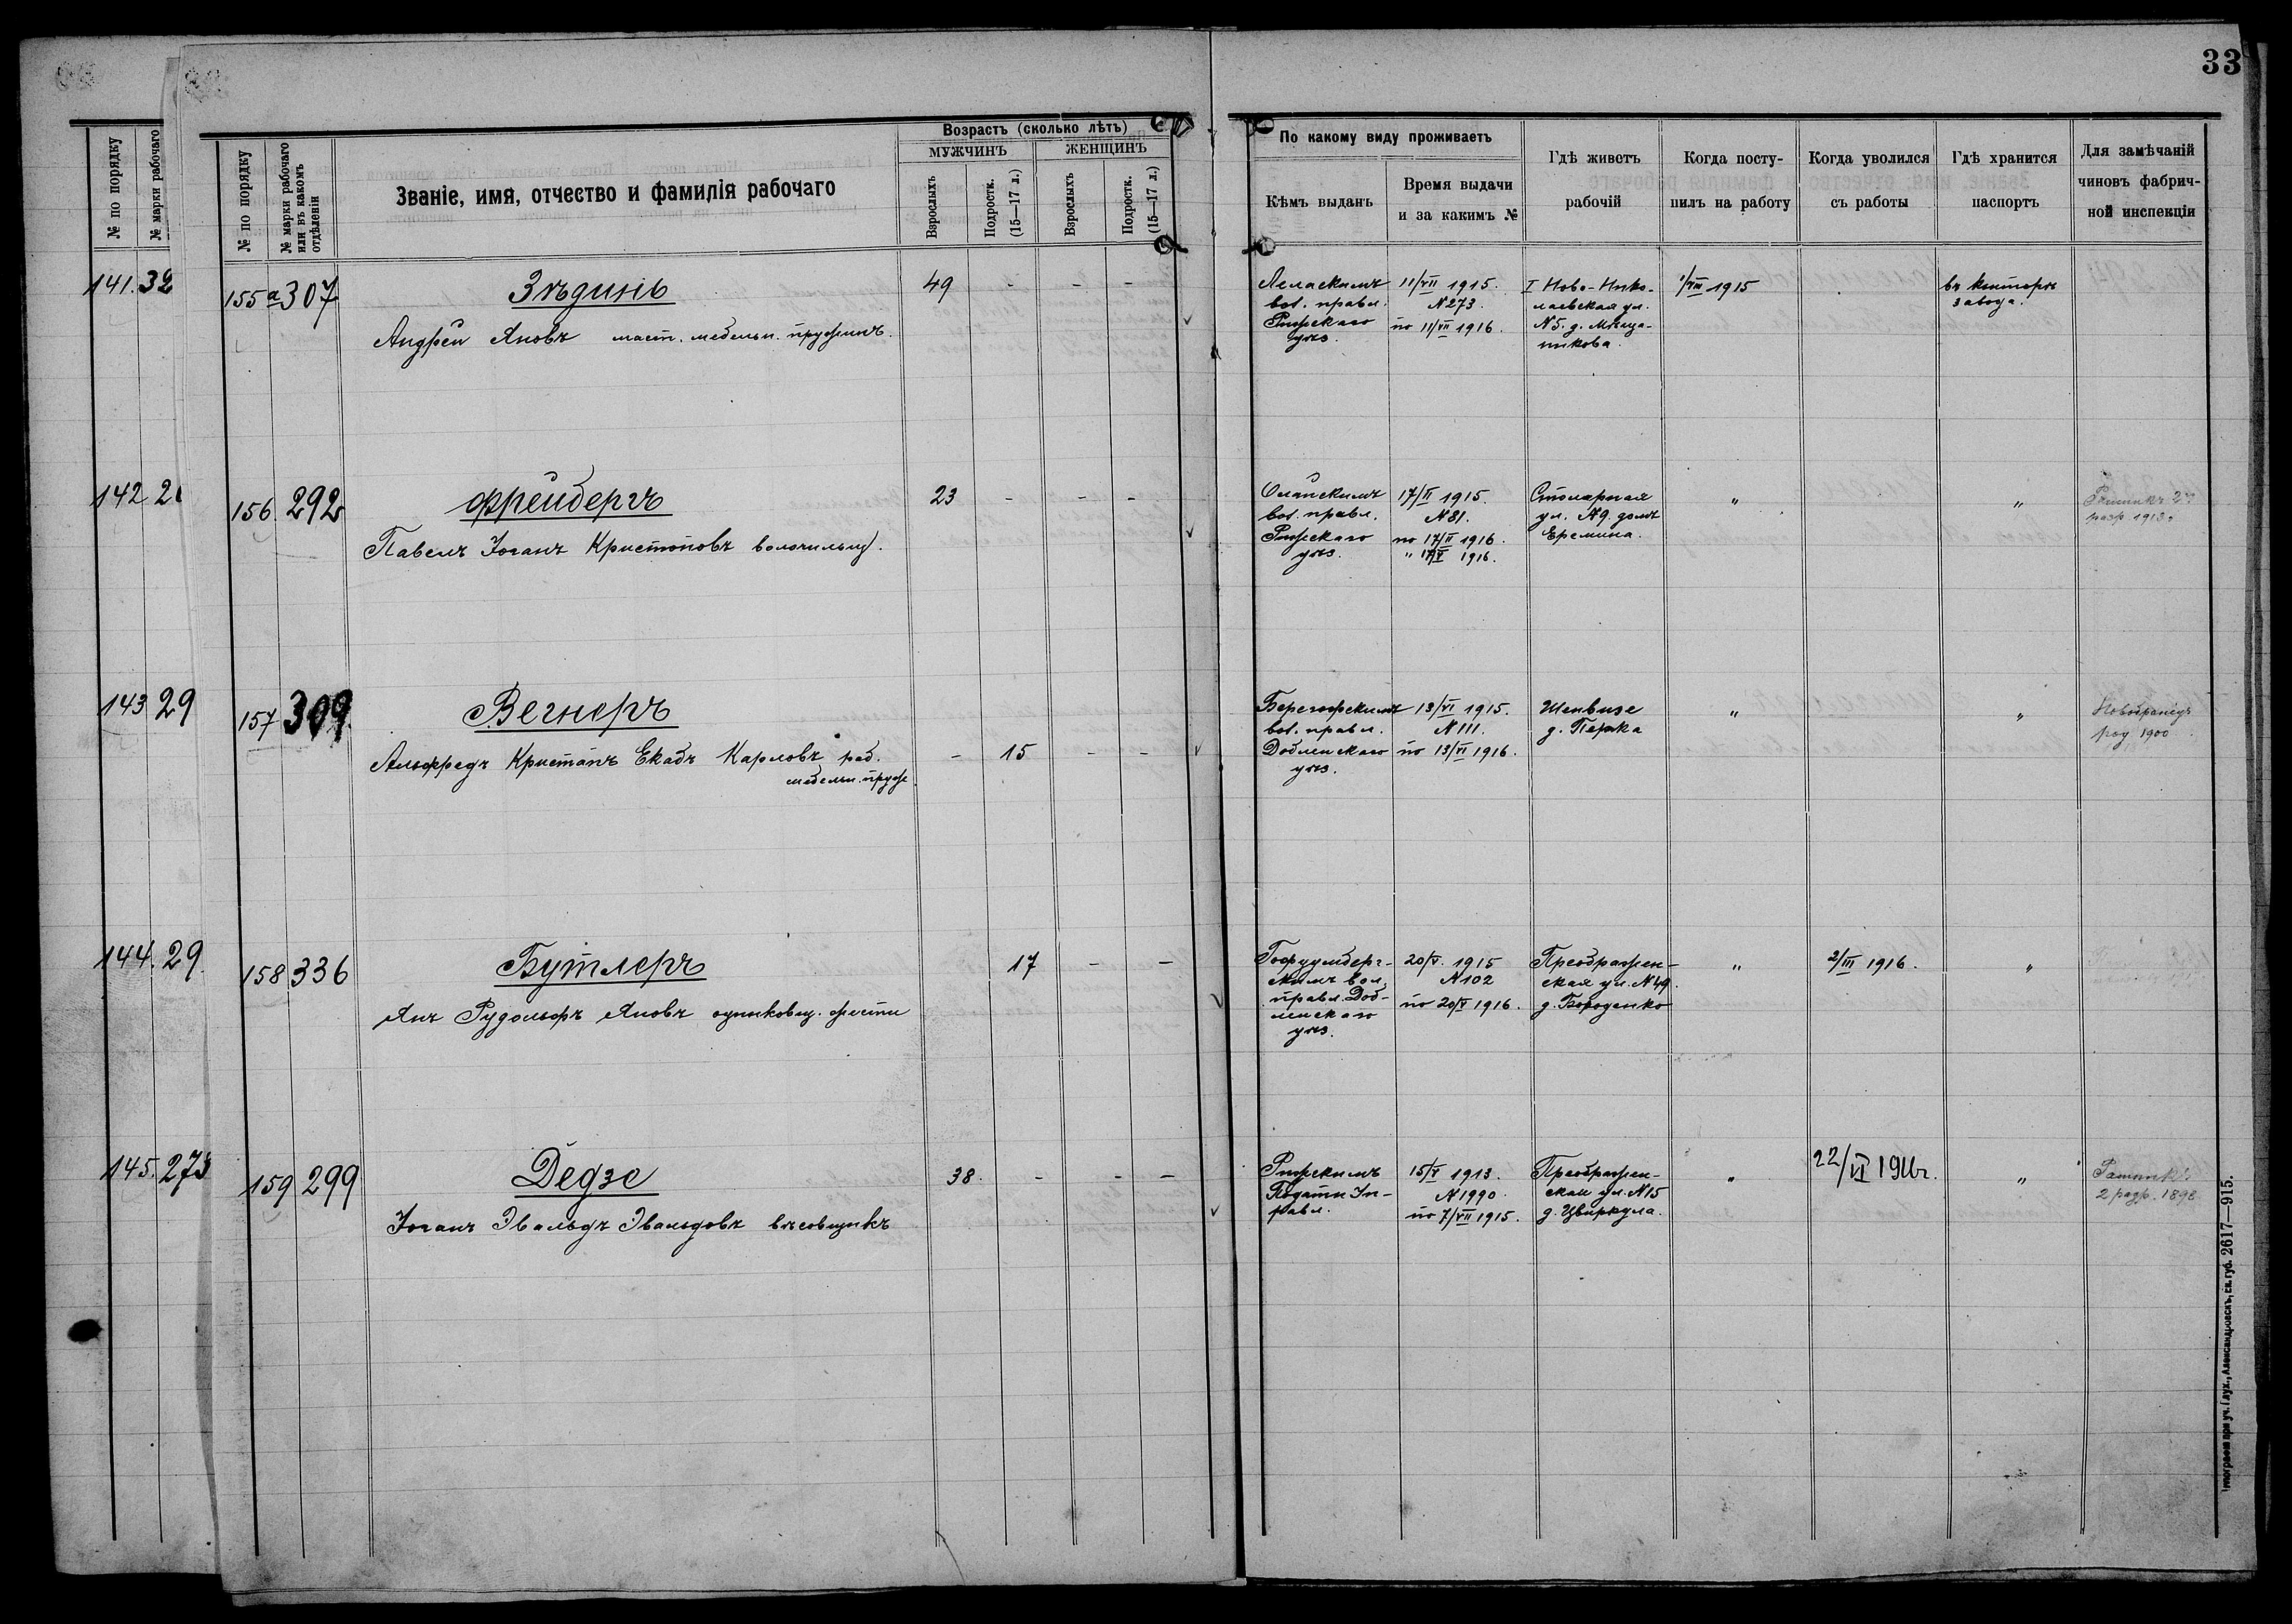 33
№ по порядку
№ марки рабочаго
№ по порядку
№ марки рабочаго или въ какомъ отдѣленіи
Званіе, имя, отчество и фамилія рабочаго
Возрастъ (сколько лѣтъ)
МУЖЧИНЪ
ЖЕНЩИНЪ
Взрослыхъ
Подростк. (15—17 л.)
Взрослыхъ
Подростк. (15—17 л.)
По какому виду проживаетъ
Кѣмъ выданъ
Время выдачи
и за какимъ №
Гдѣ живетъ
рабочій
Когда посту-
пилъ на работу
Когда уволился
съ работы
Гдѣ хранится
паспортъ
Для замѣчаній
чиновъ фабрич-
ной инспекціи
141. 32
155а 307
Зѣдинь
Андрей Яновъ маст. мебельн. пружинъ.
49 - - -
вол. правл.
Рижскаго
уѣз.
11/VII 1915.
N 273.
по 11/VII 1916.
I Ново-Нико-
лаевская ул.
N 5. д. Мѣща-
никова.
1/VIII 1915
въ конторѣ
завода.
142 2
156. 292
Фрейбергъ
Павелъ Іоганъ Кристоповъ волочильщ.
23 - - -
Олайскимъ
вол. правл.
Рижскаго
уѣз.
17/II 1915.
N 81.
по 17/II 1916.
" 17/V 1916.
Столярная
ул. N 9. домъ
Еремина.
"
"
разр. 1913.
143 29
157 309
Вегнеръ
Альфредъ Кристапъ Екабъ Карловъ раб.
мебельн. пруж.
- 15 - -
вол. правл.
Добленскаго
уѣз.
13/VI 1915.
N 111.
по 13/VI 1916.
Шенвизе
д. Перка
"
"
род. 1900
144. 29.
158 336
Бутлеръ
Янъ Рудольфъ Яновъ оцинковщ. жести
17 - -
Гофцумберг-
скимъ вол.
правл. Доб-
ленскаго
уѣз.
20/V. 1915
N 102
по 20/V 1916.
Преображен-
ская ул. N 49.
д. Бороденко
"
2/III 1916.
"
145. 273
159 299
Дедзе
Іоганъ Эвальдъ Эвальдовъ вѣсовщикъ
38. - - -
Рижскимъ
Податн. Уп-
равл.
15/V 1913.
N 1990.
по 7/VII 1915.
Преображен-
ская ул. N 15
д. Цвиркула.
"
22/VI 1916г.
"
Ратникъ
2 разр. 1898
Типографія при уч. Глух., Александровскъ, Ек. губ. 2617—915.